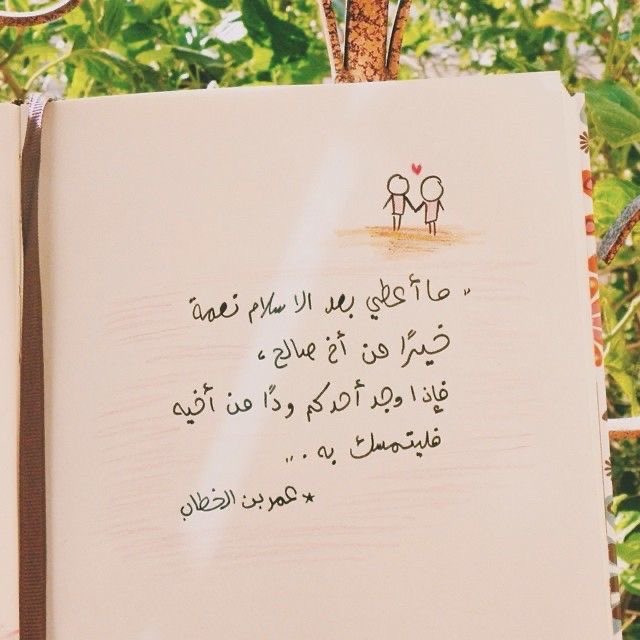 "ما أعطي بعد الاسلام نعمة
خيرًا من أخ صالح،
فإذا وجد أحدكم ودًا من أخيه
فليتمسك به .."
* عمر بن الخطاب